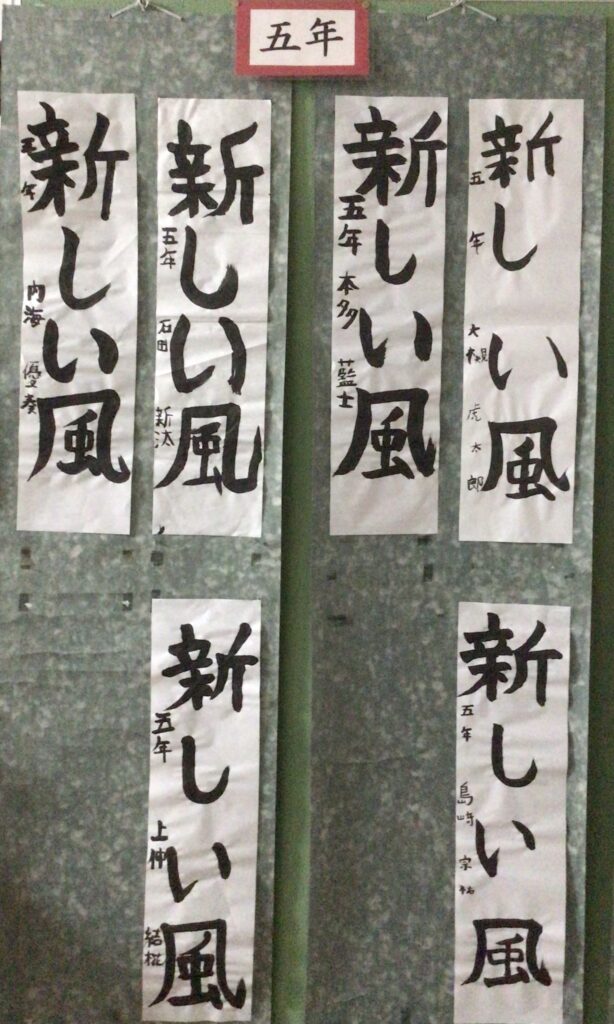 五年
新しい風
五年 大槻 虎太郎
新しい風
五年 本多 藍士
新しい風
五年 石田 新汰
新しい風
五年 内海 優奏
新しい風
五年 島崎 宗祐
新しい風
五年 上仲 結椛